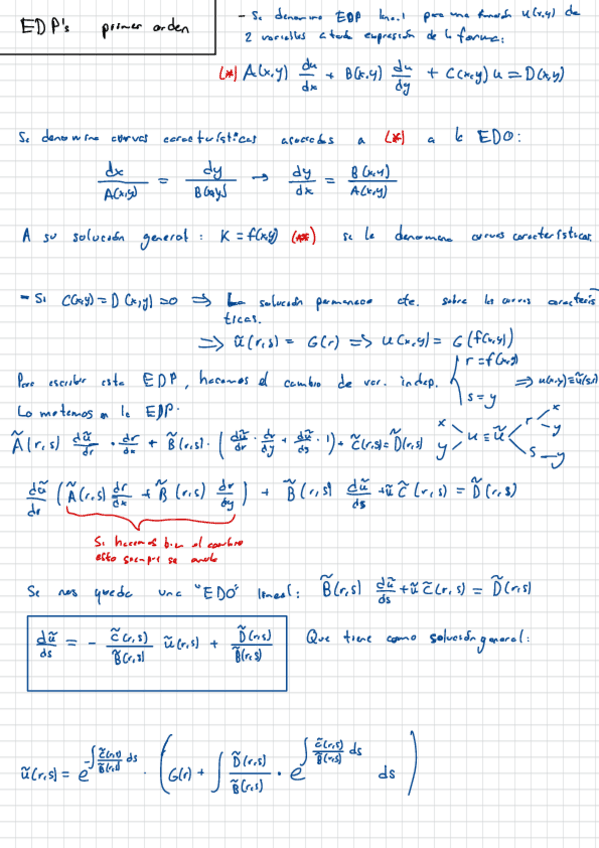 EDP's primer orden
- Se denomina EDP lineal para una función u(x,y) de
2 variables a toda expresión de la forma:
(*) A(x,y) du/dx + B(x,y) du/dy + C(x,y) u = D(x,y)
Se denomina curvas características asociadas a (*) a la EDO:
dx/A(x,y) = dy/B(x,y) → dy/dx = B(x,y)/A(x,y)
A su solución general: K = f(x,y) (**) se le denomina curvas características.
- Si C(x,y) = D(x,y) = 0 ⇒ La solución permanece cte. sobre las curvas caracterís
ticas.
⇒ ũ(r,s) = G(r) ⇒ u(x,y) = G(f(x,y))
Para escribir esta EDP, hacemos el cambio de var. indep. { r = f(x,y) s = y ⇒ u(x,y) ≡ ũ(r,s)
Lo metemos en la EDP:
Ã(r,s) dũ/dr · dr/dx + B̃(r,s) · (dũ/dr · dr/dy + dũ/ds · 1) + C̃(r,s) = D̃(r,s)
x y u ≡ ũ r x y s y
dũ/dr (Ã(r,s) dr/dx + B̃(r,s) dr/dy) + B̃(r,s) dũ/ds + ũ C̃(r,s) = D̃(r,s)
Si hacemos bien el cambio
esto siempre se anula
Se nos queda una "EDO" lineal: B̃(r,s) dũ/ds + ũ C̃(r,s) = D̃(r,s)
dũ/ds = - C̃(r,s)/B̃(r,s) ũ(r,s) + D̃(r,s)/B̃(r,s) Que tiene como solución general:
ũ(r,s) = e^(-∫ C̃(r,s)/B̃(r,s) ds) · (G(r) + ∫ D̃(r,s)/B̃(r,s) · e^(∫ C̃(r,s)/B̃(r,s) ds) ds)